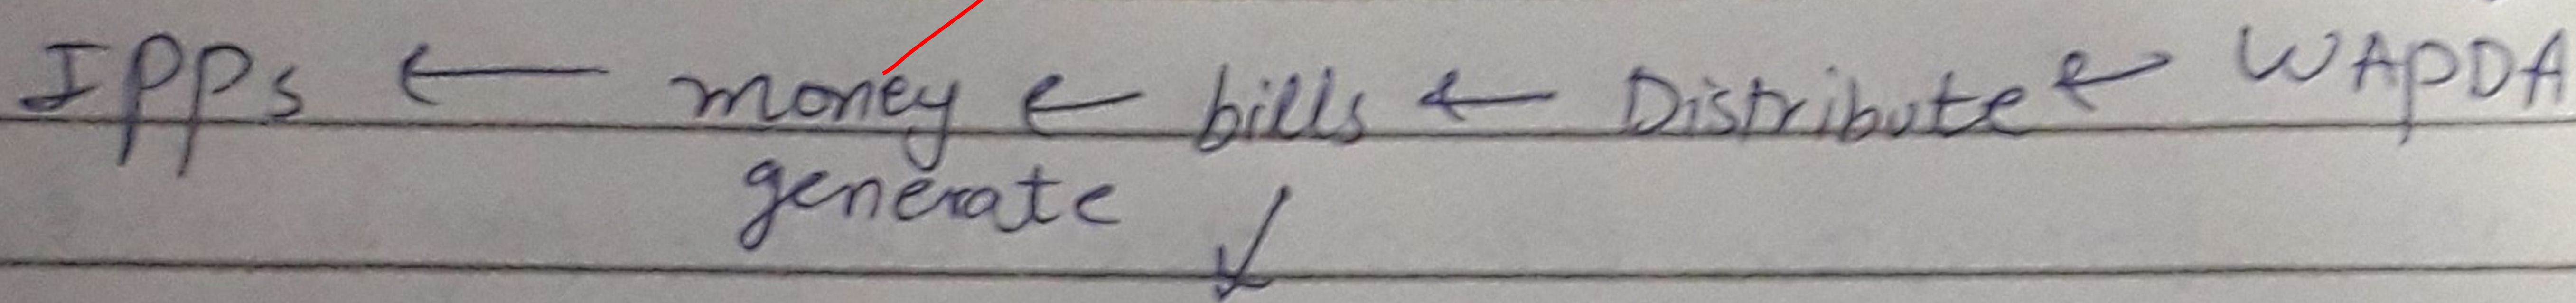 IPPs ← money ← bills ← Distribute ← WAPDA
generate ↓